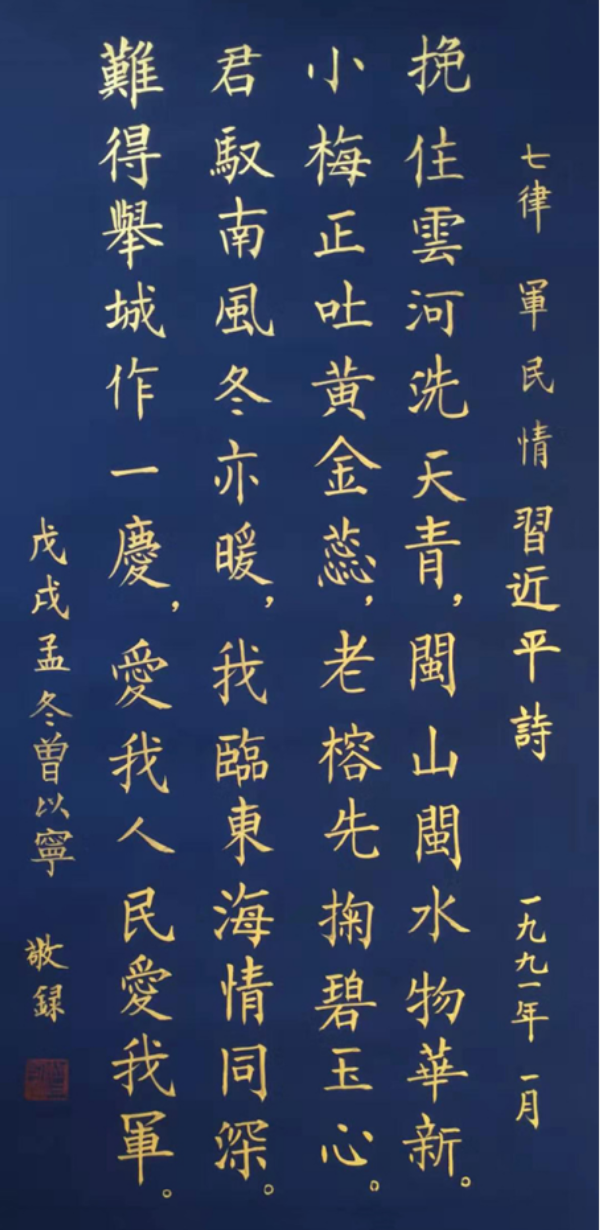 七律 軍民情 習近平詩 一九九一年一月
挽住雲河洗天青，閩山閩水物華新。
小梅正吐黄金蕊，老榕先掬碧玉心。
君馭南風冬亦暖，我臨東海情同深。
難得舉城作一慶，愛我人民愛我軍。
戊戌孟冬曾以寧 敬録